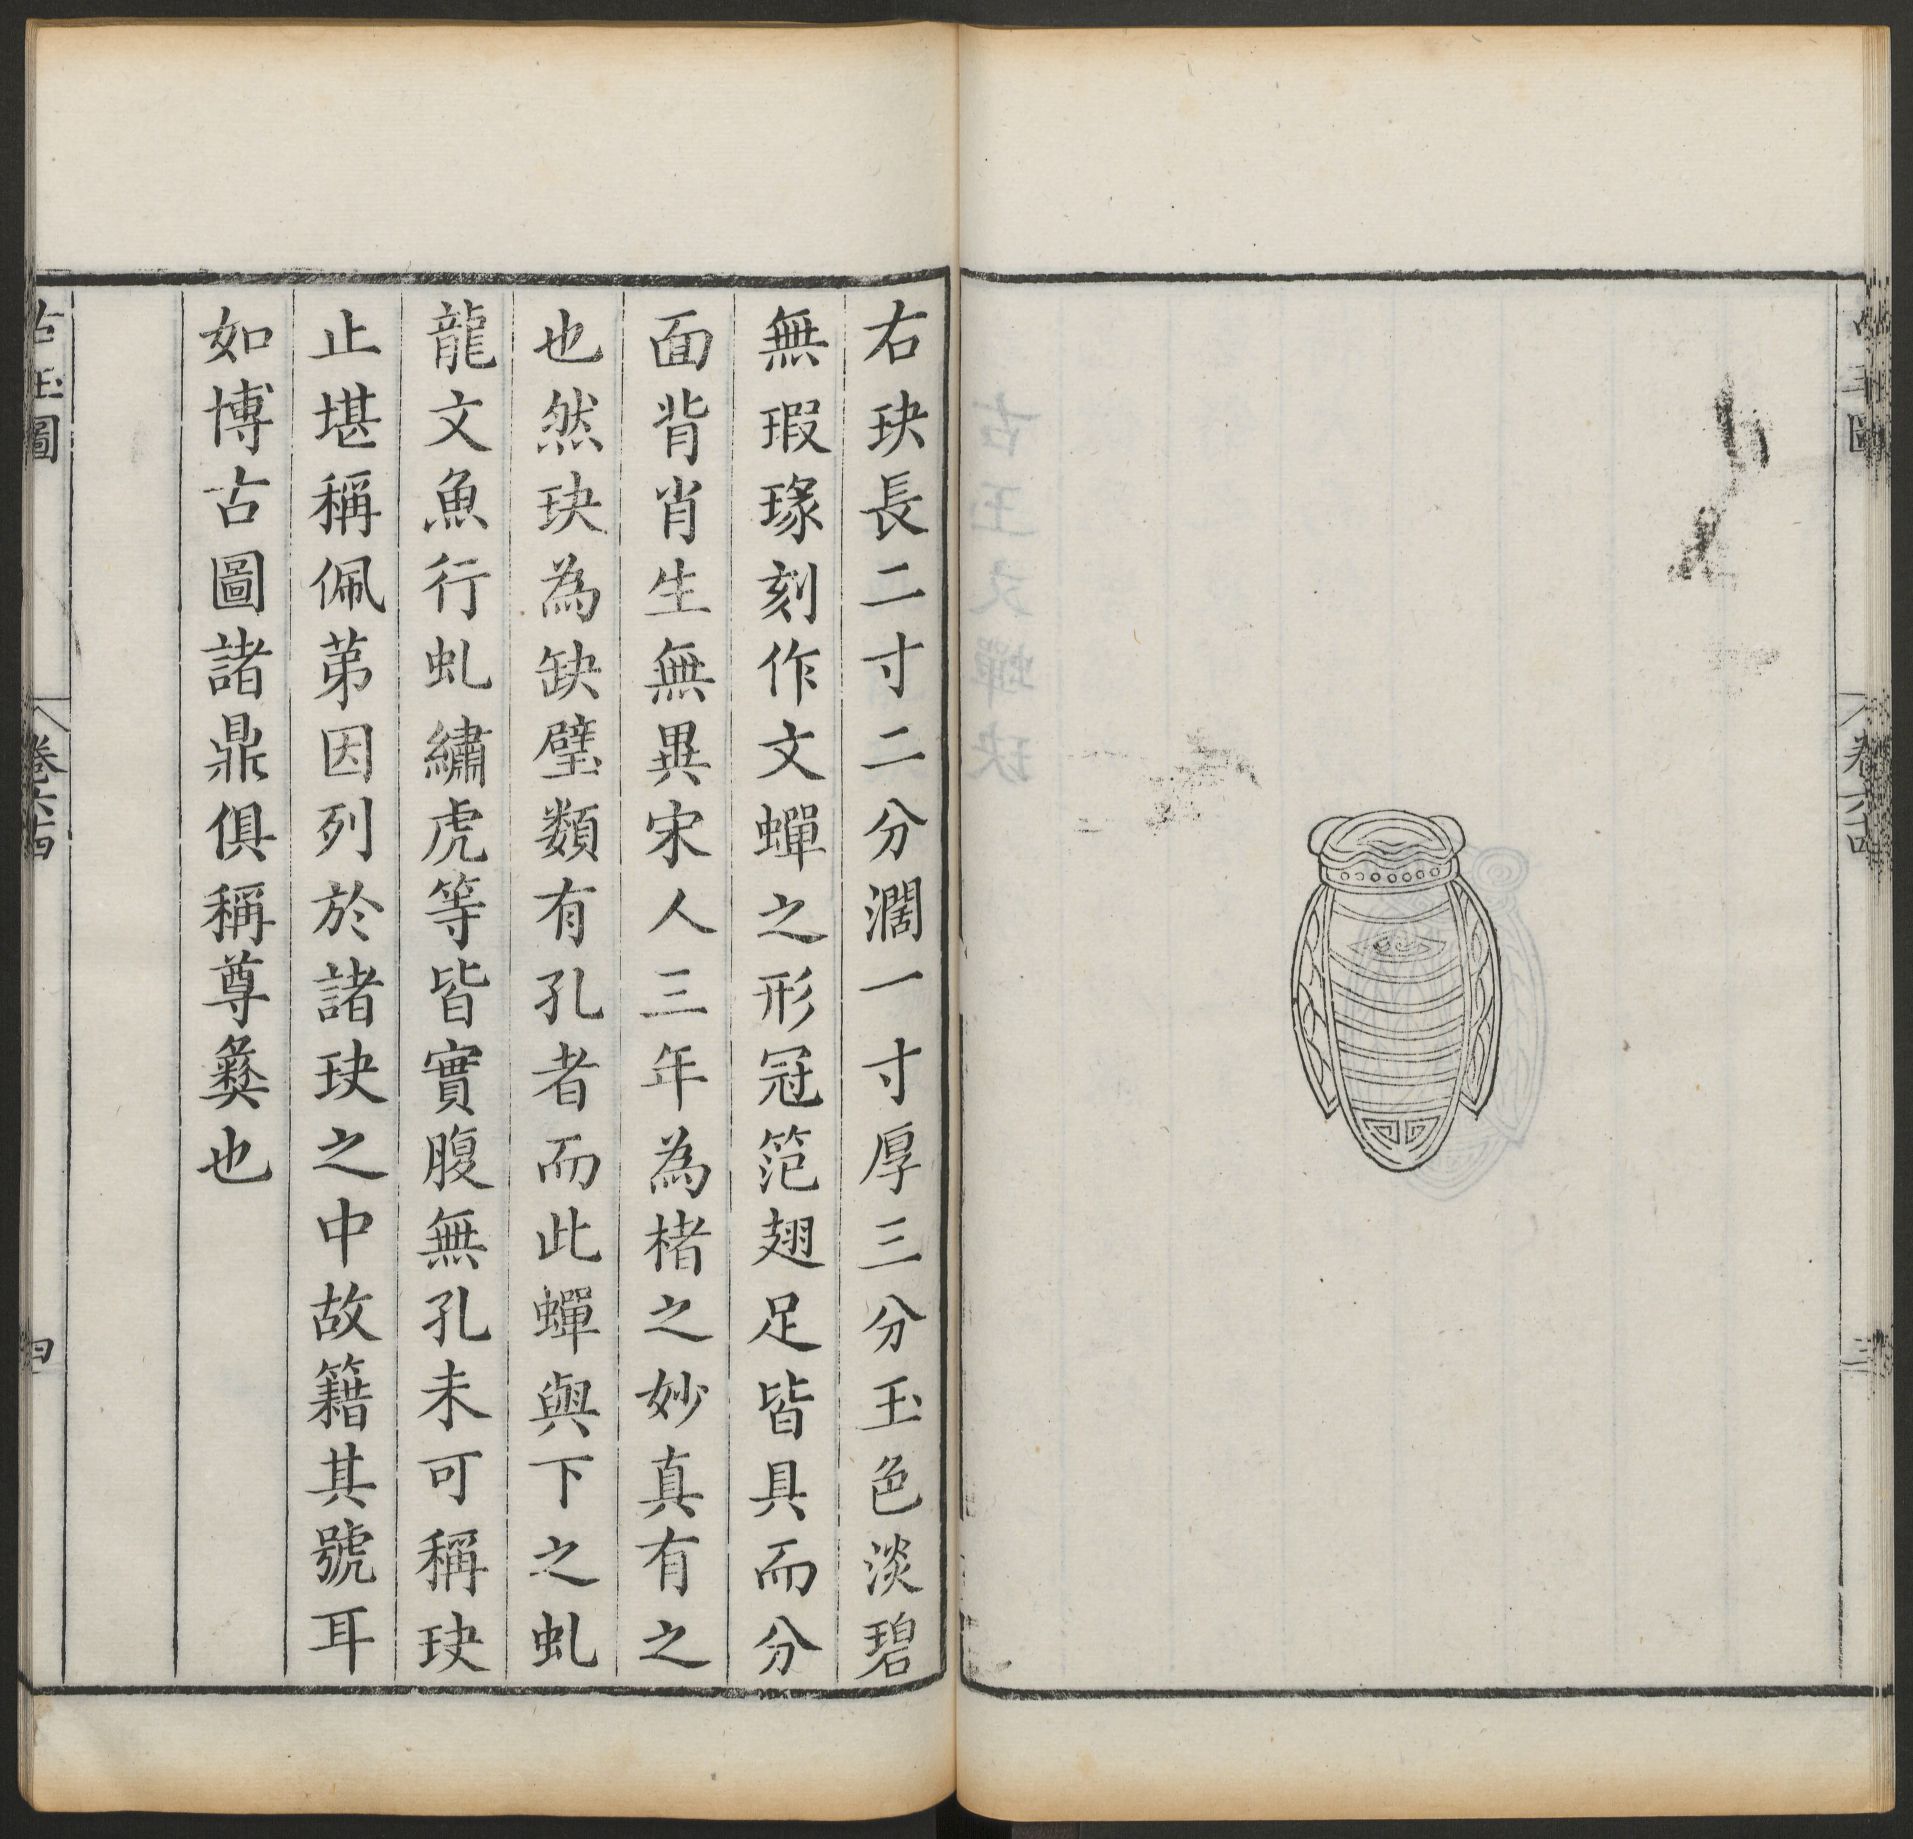 右玦長二寸二分濶一寸厚三分玉色淡碧
無瑕瑑刻作文蟬之形冠笵翅足皆具而分
面背肖生無異宋人三年為楮之妙真有之
也然玦為缺璧類有孔者而此蟬與下之虬
龍文魚行虬繡虎等皆實腹無孔未可稱玦
止堪稱佩苐因列於諸玦之中故籍其號耳
如博古圖諸鼎俱稱尊彝也
古玉圖
卷六四
四